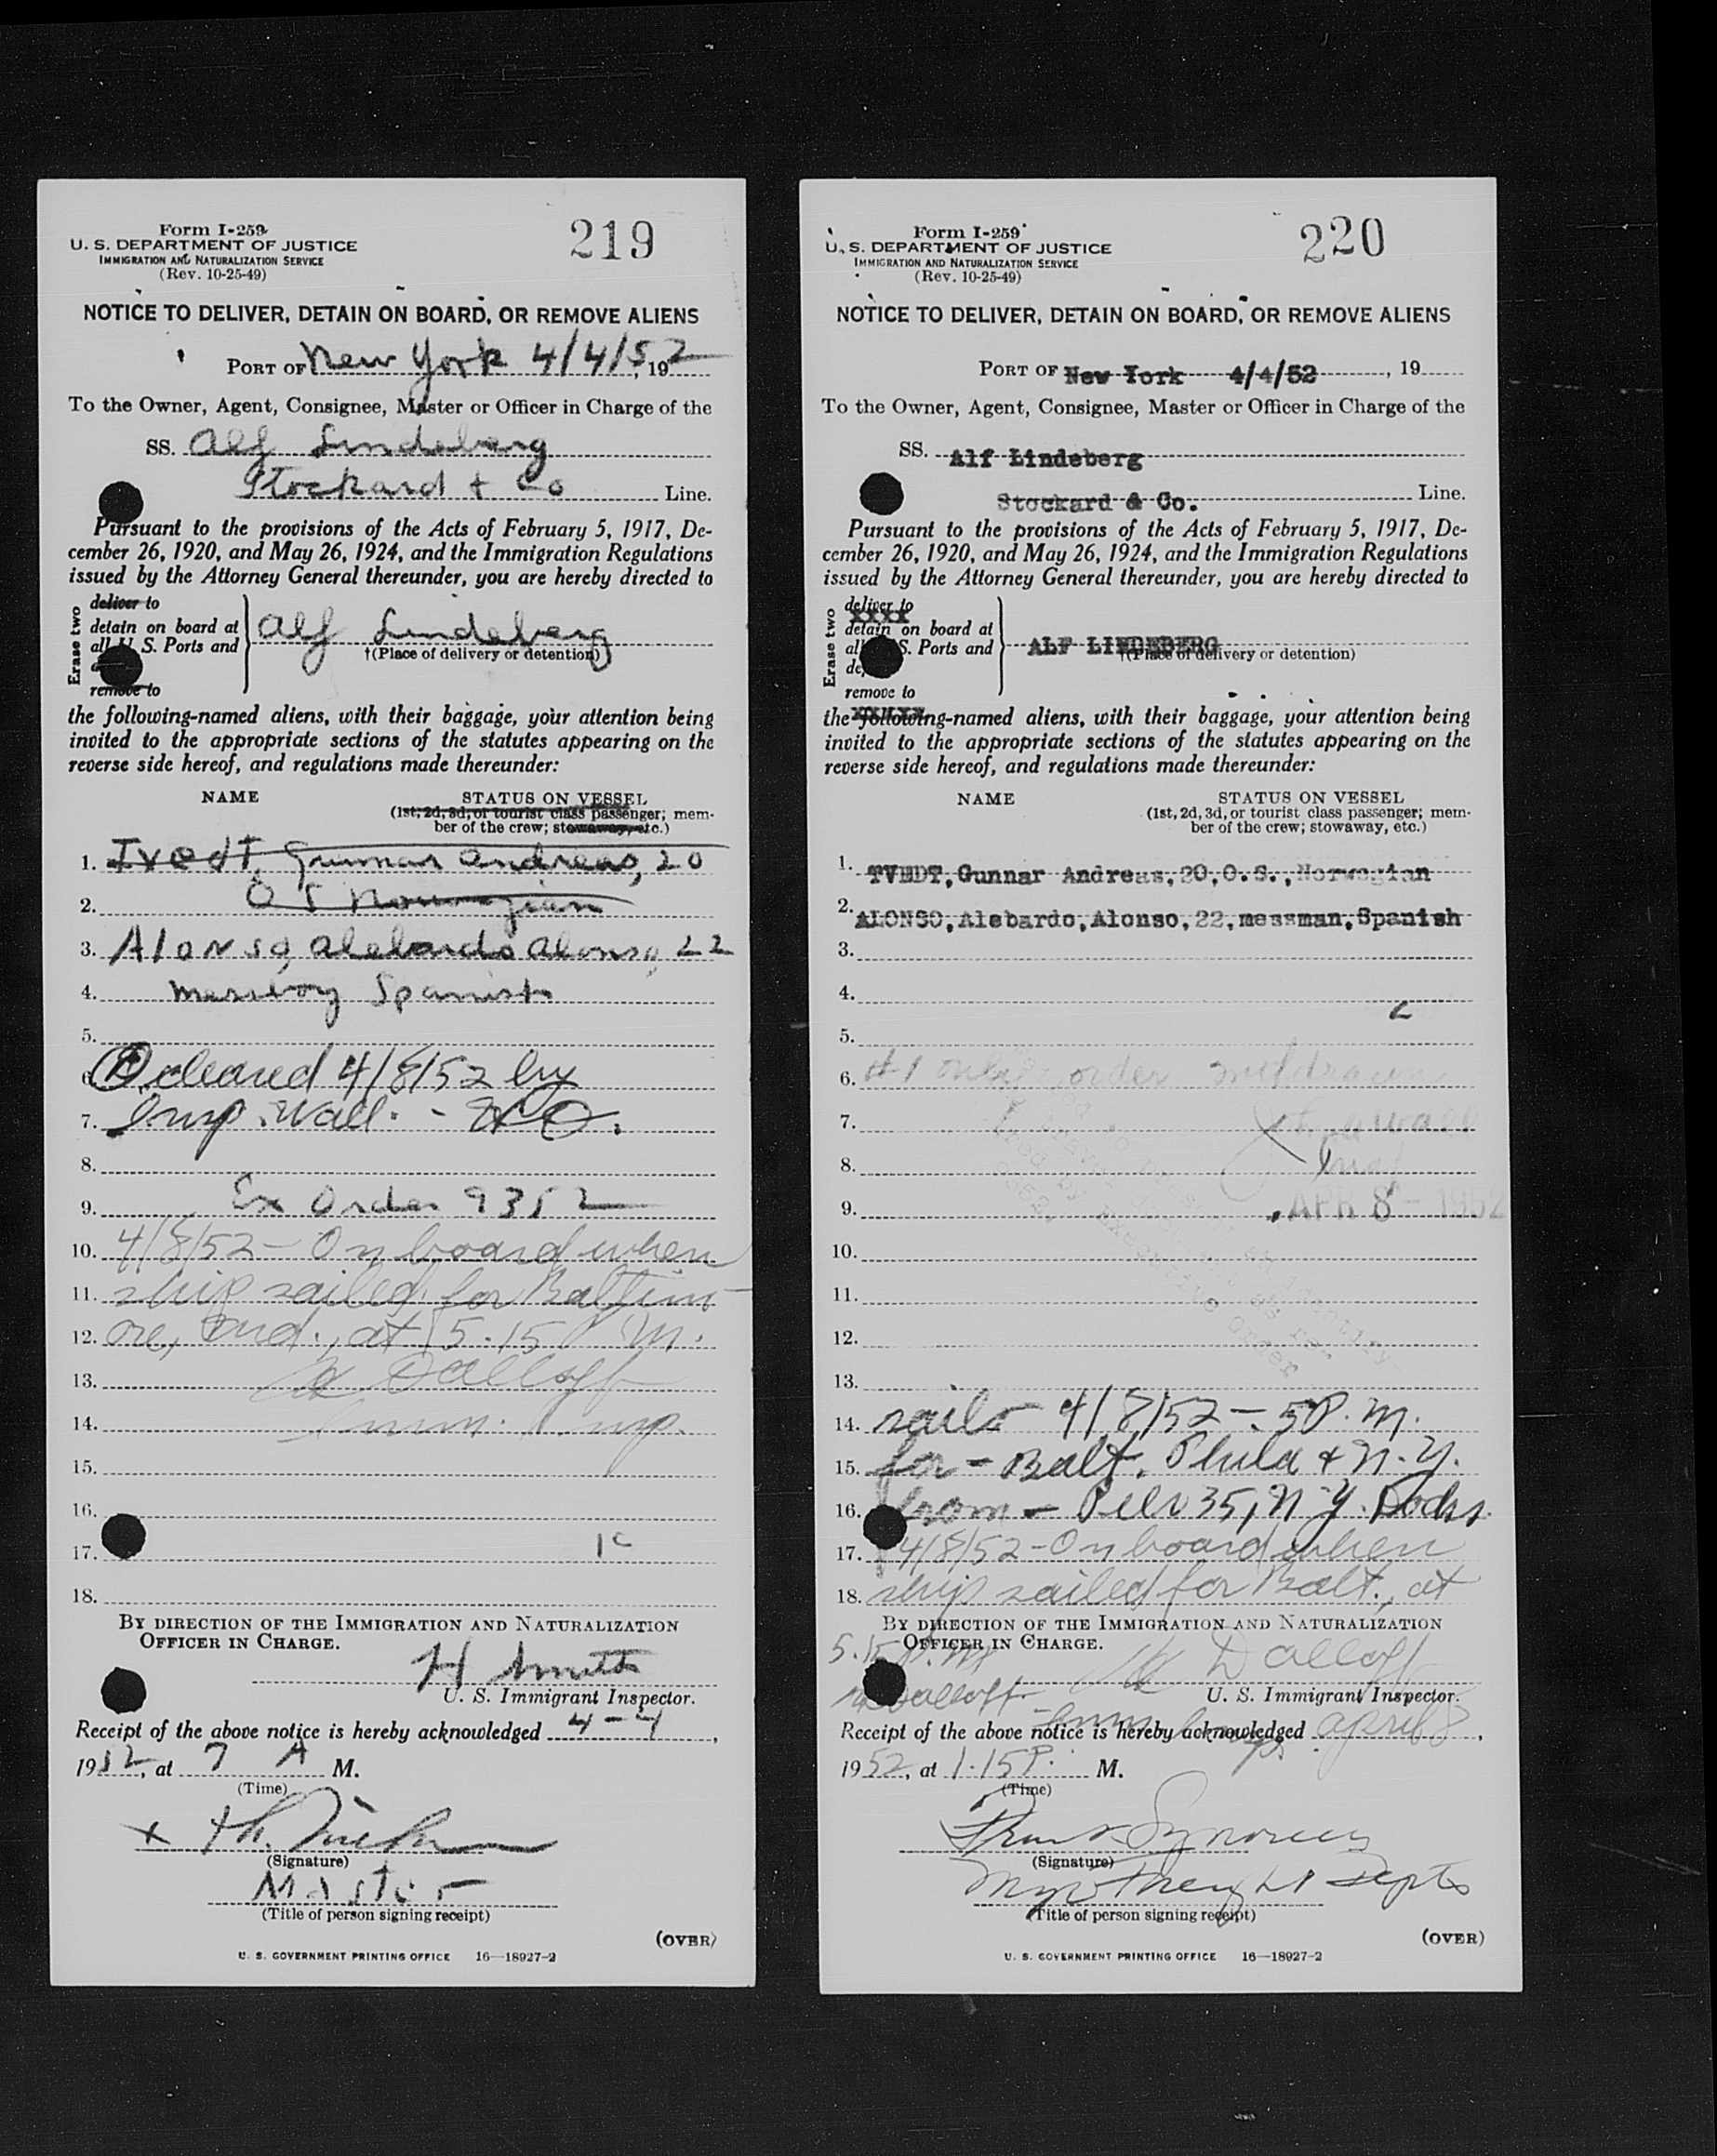 Form I-259
U. S. DEPARTMENT OF JUSTICE
IMMIGRATION AND NATURALIZATION SERVICE
(Rev. 10-25-49)
219
NOTICE TO DELIVER, DETAIN ON BOARD, OR REMOVE ALIENS
PORT OF New York 4/4/52, 19
To the Owner, Agent, Consignee, Master or Officer in Charge of the
SS. Alf Lindeberg
Stockard + Co Line.
Pursuant to the provisions of the Acts of February 5, 1917, De-
cember 26, 1920, and May 26, 1924, and the Immigration Regulations
issued by the Attorney General thereunder, you are hereby directed to
Erase two
deliver to
detain on board at
all U. S. Ports and
remove to
Alf Lindeberg
†(Place of delivery or detention)
the following-named aliens, with their baggage, your attention being
invited to the appropriate sections of the statutes appearing on the
reverse side hereof, and regulations made thereunder:
NAME STATUS ON VESSEL
(1st, 2d, 3d, or tourist class passenger; mem-
ber of the crew; stowaway, etc.)
1. Tvedt, Gunnar Andreas, 20
2. O S Norwegian
3. Alonso, Alebardo Alonso, 22
4. Messboy Spanish
5.
6. cleared 4/8/52 by
7. Insp. Wall. -
8.
9. Ex Order 9352
10. 4/8/52 - On board when
11. ship sailed for Baltim-
12. ore, Md., at 5.15 P. M.
13. Dalloff
14. Imm. Insp.
15.
16.
17. 1c
18.
BY DIRECTION OF THE IMMIGRATION AND NATURALIZATION
OFFICER IN CHARGE.
H Smith
U. S. Immigrant Inspector.
Receipt of the above notice is hereby acknowledged 4-4,
1952, at 7 A M.
(Time)
x Th.
(Signature)
Master
(Title of person signing receipt)
(OVER)
U. S. GOVERNMENT PRINTING OFFICE 16—18927-2
Form I-259
U. S. DEPARTMENT OF JUSTICE
IMMIGRATION AND NATURALIZATION SERVICE
(Rev. 10-25-49)
220
NOTICE TO DELIVER, DETAIN ON BOARD, OR REMOVE ALIENS
PORT OF New York 4/4/52, 19
To the Owner, Agent, Consignee, Master or Officer in Charge of the
SS. Alf Lindeberg
Stockard & Co. Line.
Pursuant to the provisions of the Acts of February 5, 1917, De-
cember 26, 1920, and May 26, 1924, and the Immigration Regulations
issued by the Attorney General thereunder, you are hereby directed to
Erase two
deliver to
xxxx
detain on board at
all U. S. Ports and
remove to
ALF LINDEBERG
†(Place of delivery or detention)
the following-named aliens, with their baggage, your attention being
invited to the appropriate sections of the statutes appearing on the
reverse side hereof, and regulations made thereunder:
NAME STATUS ON VESSEL
(1st, 2d, 3d, or tourist class passenger; mem-
ber of the crew; stowaway, etc.)
1. TVEDT, Gunnar Andreas, 20, O.S., Norwegian
2. ALONSO, Alebardo, Alonso, 22, messman, Spanish
3.
4.
5.
6. #1 only order withdrawn
7. Wall
8. Insp
9. APR 8 - 1952
10.
11.
12.
13.
14. sails 4/8/52 - 5 P. M.
15. for - Balt. Phila + N. Y.
16. from - Pier 35, N. Y. Docks.
17. 4/8/52 - On board when
18. ship sailed for Balt., at
BY DIRECTION OF THE IMMIGRATION AND NATURALIZATION
OFFICER IN CHARGE.
5.15 P. M. Dalloff
U. S. Immigrant Inspector.
Dalloff - Imm. Insp.
Receipt of the above notice is hereby acknowledged April 8,
1952, at 1.15 P. M.
(Time)
(Signature)
Depts
(Title of person signing receipt)
(OVER)
U. S. GOVERNMENT PRINTING OFFICE 16—18927-2